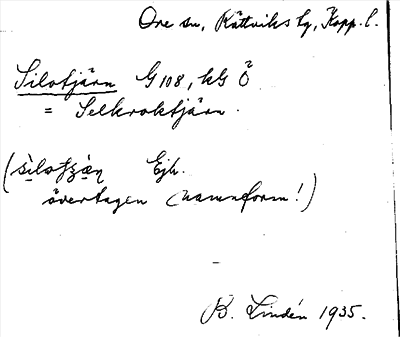 Ore sn, Rättviks tg, Kopp. l.
Silotjärn G 108, kG Ö
= Selkroktjärn.
Ejh.
övertagen (namnform!)
B. Lindén 1935.